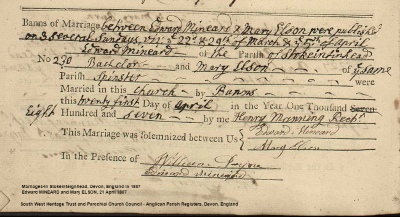 Banns of Marriage between Edward Mineard & Mary Elson were publish'd
on 3 several Sundays viz. 22d & 29th of March & 5th of April
Edward Mineard of the Parish of Stokeintinhead
No 230 Bachelor and Mary Elson of ye same
Parish Spinster were
Married in this Church by Banns
this twenty first Day of April in the Year One Thousand Seven
Eight Hundred and Seven by me Henry Manning Rect
This Marriage was solemnized between Us Edward Minard
Mary Elson
In the Presence of William
Edward Mineard
Marriage in Stokeinteignhead, Devon, England in 1807
Edward MINEARD and Mary ELSON, 21 April 1807
South West Heritage Trust and Parochial Church Council - Anglican Parish Registers, Devon, England